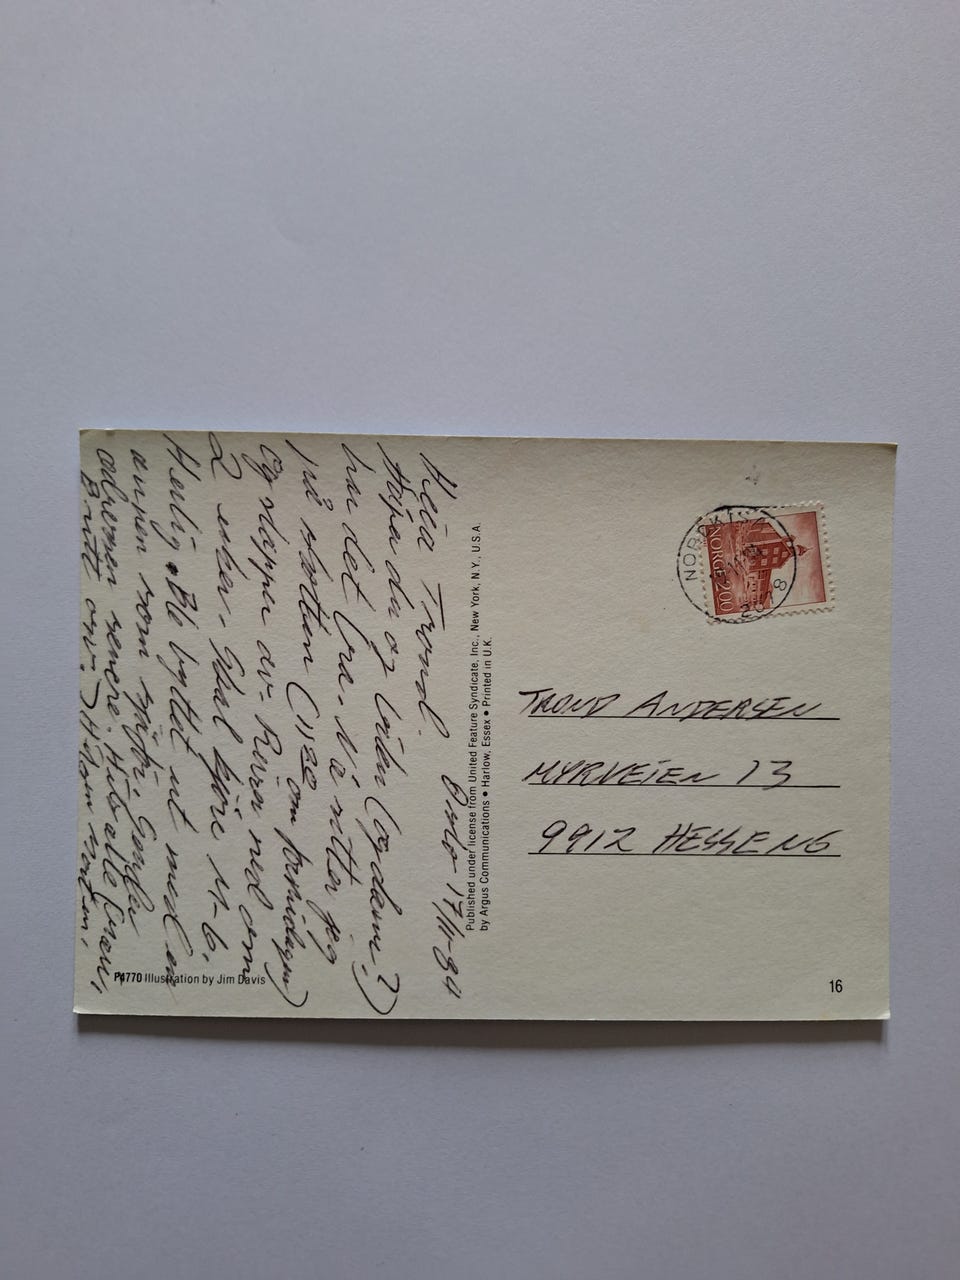 Heia Trond. Oslo 17/11-84
Håper du og Liden (og dama?)
har det bra. Nå sitter jeg
på stolen (1130 om formiddagen)
og slapper av. Reiser ned om
2 uker. Skal kjøre
Herlig. Ble byttet ut med en
annen som sjåfør. Sender
adressen senere. Hils alle
Britt
Published under license from United Feature Syndicate, Inc., New York, N.Y., U.S.A.
by Argus Communications • Harlow, Essex • Printed in U.K.
P4770 Illustration by Jim Davis
NORGE 200
TROND ANDERSEN
MYRVEIEN 13
9912 HESSENG
16